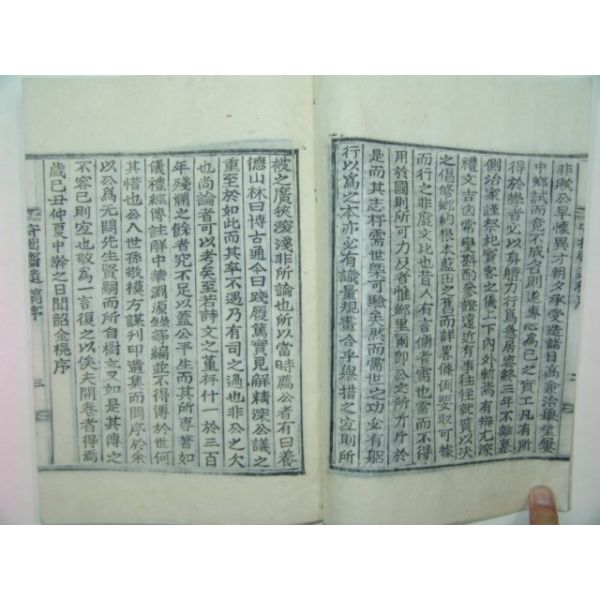 非歟公早懷異才朝夕承受造詣日高兼治擧業屢
中鄕試而竟不成名則遂專心爲己之實工凡有所
得於學者必以身體力行爲急居喪終三年不離墓
側治家謹祭祀賓客之儀上下內外斬焉有辨尤深
禮文吉凶常學斟酌參證遠近有事往往就質以決
之倡修鄕約根本藍田之舊而詳著條例要取可據
而行之非度文比也昔人有言儒者需也需而不得
用於國則所可力及者惟鄕里爾卽公之所力斤於
是而其志扞需世槩可驗矣然而需世之功必有躬
行以爲之本亦必有識量規畫合乎擧措之宜則所
被之廣狹淺淺非所論也所以當時薦公者有曰養
德山林曰博古通今曰踐履篤實見解精深公議之
重至於如此而其卒不遇乃有司之過也非公之欠
也尙論者可以考矣至若詩文之董存什一於三百
年殘爛之餘者究不足以蓋公平生而其所專著如
儀禮經傳註解中華淵源錄等編並不得傳於世何
其惜也公八世孫敬模方謀刊印遺集而問序於余
以公爲无悶先生賢嗣而所自樹立又如是其傳之
不容已則宜也敬爲一言復之以俟夫開卷者得焉
歲己丑仲夏中澣之日聞韶金㙆序
守拙齋遺稿序
三